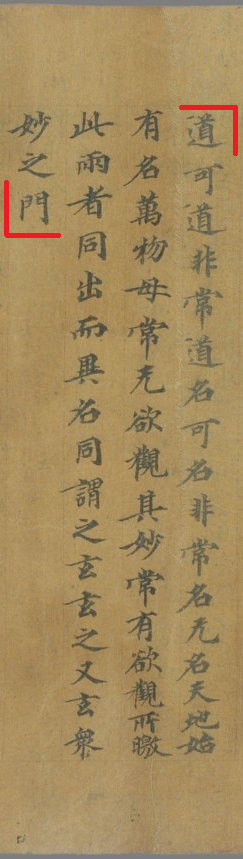 道可道非常道名可名非常名无名天地始
有名萬物母常无欲觀其妙常有欲觀所曒
此兩者同出而異名同謂之玄玄之又玄衆
妙之門